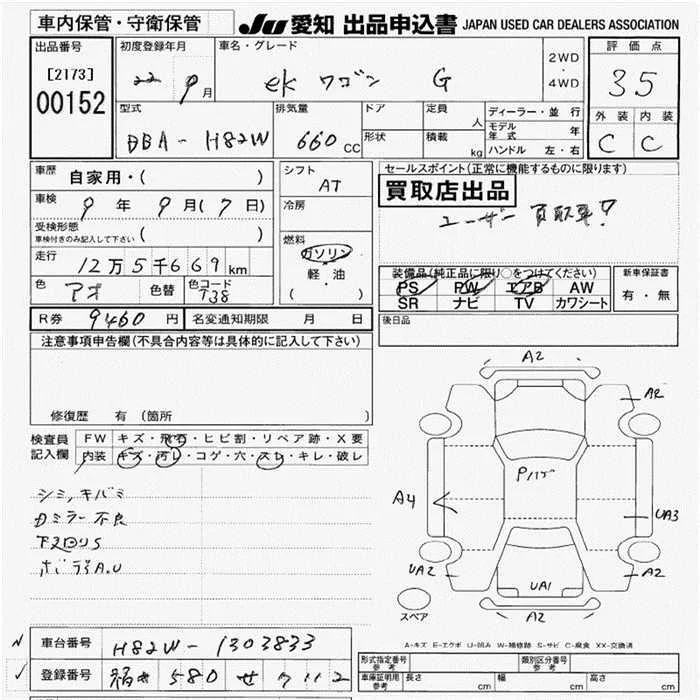 車内保管・守衛保管
JU 愛知 出品申込書 JAPAN USED CAR DEALERS ASSOCIATION
出品番号
[2173]
00152
初度登録年月
22 9月
車名・グレード
ek ワゴン G
2WD
・
4WD
評価点
3.5
外装 内装
C C
型式
DBA- H82W
排気量
660 CC
ドア
形状
定員 人
積載 kg
ディーラー・並行
モデル年式 年
ハンドル 左・右
車歴 自家用・( )
車検 9年9月(7日)
受検形態
車検付きのみ記入して下さい ( )
走行 12万5千669km
色 アオ 色替
色コード
T38
シフト
AT
冷房
燃料
ガソリン
軽・油
( )
セールスポイント(正常に機能するものに限ります)
買取店出品
ユーザー買取車!!
装備品(純正品に限り○をつけてください)
PS PW エアB AW
SR ナビ TV カワシート
新車保証書
有・無
R券 9460円
名変通知期限 月 日
後日品
注意事項申告欄(不具合内容等は具体的に記入して下さい)
修復歴 有(箇所 )
検査員記入欄
FW キズ・飛石・ヒビ割・リペア跡・X要
内装 キズ・汚レ・コゲ・穴・スレ・キレ・破レ
シミ,キバミ
カミラー不良
下回りS
A2
A2
A4
UA3
UA2
UA1
A2
A2
スペア
A-キズ E-エクボ U-凹み W-補修跡 S-サビ C-腐食 XX-交換済
車台番号 H82W-1303833
登録番号 580 せ
形式指定番号
参考
類別区分番号
参考
車庫証明用
参考
長さ cm 幅 cm 高さ cm